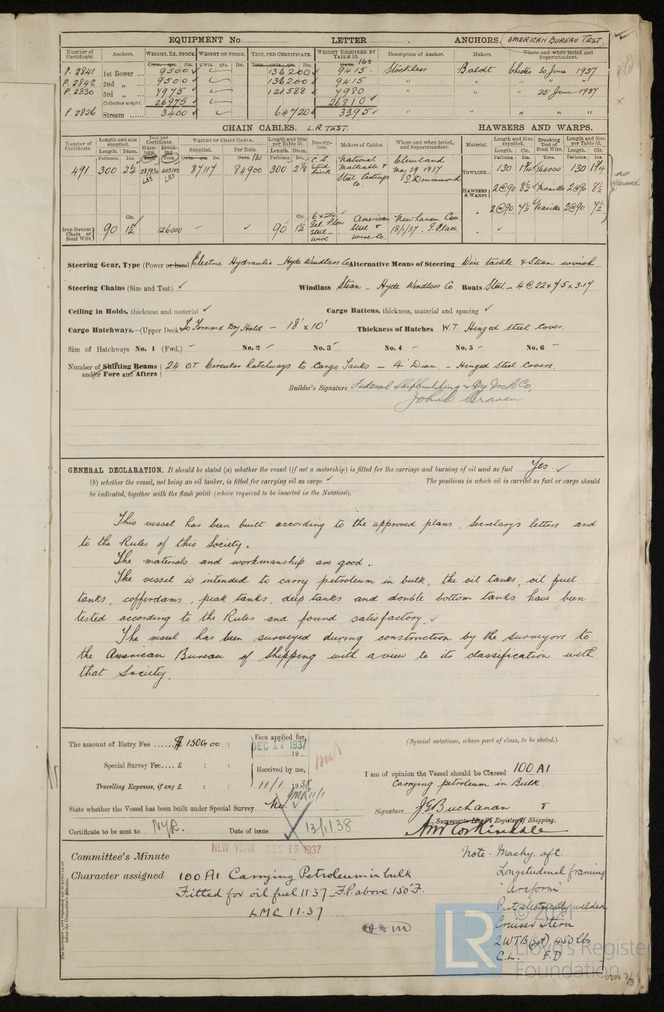 EQUIPMENT No LETTER ANCHORS. AMERICAN BUREAU TEST
Number of Certificate. Anchors. WEIGHT, EX. STOCK. WEIGHT OF STOCK. TEST, PER CERTIFICATE. WEIGHT REQUIRED BY TABLE 53. Description of Anchor. Makers. Where and when tested and Superintendent.
P. 2841 1st Bower ... 9500 ✓ 136200 ✓ 9415 Stockless Baldt Chester 30 June 1937
P. 2842 2nd " ... 9500 ✓ 136200 ✓ 9415 " " " " "
P. 2830 3rd " ... 7975 ✓ 121588 ✓ 7980 " " " 25 June 1937
Collective weight. 26975 ✓ 26810 ✓
P. 2826 Stream ... 3400 ✓ 64720 ✓ 3395 ✓ " " " "
CHAIN CABLES. L.R TEST. HAWSERS AND WARPS.
Number of Certificate. Length and size supplied. Test per Certificate. WEIGHT OF CHAIN CABLE. Length and size per Table 53. Description. Makers of Cables. Where and when tested, and Superintendent. Material. Length and size supplied. Breaking Test of Steel Wire. Length and size per Table 53.
Fathoms. Diam. Supplied. Per Rule. Length. Diam. Fathoms. Cir. Length. Cir.
491 300 2⅛ 87117 84900 300 2⅛ C.S. Stud Link National Malleable & Steel Castings Co. Cleveland May 29 1937 Drummond
TOWLINE 130 130
HAWSERS & WARPS 2@90 8½ Manilla 2@90 8½
" 2@90 7½ Manilla 2@90 7½
Iron Stream Chain or Steel Wire 90 126000 90 American Steel & Wire Co. New Haven. Con. 18/1/37
Steering Gear, Type (Power or hand) Electric Hydraulic - Hyde Windlass Co Alternative Means of Steering Wire tackle & Steam winch
Steering Chains (Size and Test) ✓ Windlass Steam - Hyde Windlass Co Boats Steel - 4 @ 22 x 7.5 x 3.17
Ceiling in Holds, thickness and material ✓ Cargo Battens, thickness, material and spacing ✓
Cargo Hatchways.—(Upper Deck) To Forward Dry Hold - 18' x 10' Thickness of Hatches W.T. Hinged steel cover.
Size of Hatchways No. 1 (Fwd.) No. 2 No. 3 No. 4 No. 5 No. 6
Number of Shifting Beams and/or Fore and Afters } 24 O.T Circular hatchways to Cargo Tanks - 4' Diam. - Hinged Steel covers.
Builder's Signature. Federal Shipbuilding & Dry Dock Co,
John C Craven
GENERAL DECLARATION. It should be stated (a) whether the vessel (if not a motorship) is fitted for the carriage and burning of oil used as fuel Yes. ✓
(b) whether the vessel, not being an oil tanker, is fitted for carrying oil as cargo ✓ The positions in which oil is carried as fuel or cargo should
be indicated, together with the flash point (where required to be inserted in the Notation).
This vessel has been built according to the approved plans, Secretarys letters and
to the Rules of this Society.
The materials and workmanship are good.
The vessel is intended to carry petroleum in bulk, the oil tanks, oil fuel
tanks, cofferdams, peak tanks, deep tanks and double bottom tanks have been
tested according to the Rules and found satisfactory. ✓
The vessel has been surveyed during construction by the surveyors to
the American Bureau of Shipping with a view to its classification with
that Society.
The amount of Entry Fee ...... $ 1500.00 : : Fees applied for, DEC 17 1937
(Special notations, where part of class, to be stated.)
Special Survey Fee.... £ : : Received by me,
Travelling Expenses, if any £ : : 11/1 1938
I am of opinion the Vessel should be Classed 100 A1
Carrying petroleum in Bulk.
State whether the Vessel has been built under Special Survey No
Signature J.G. Buchanan &
Surveyor to Lloyd's Register of Shipping.
Certificate to be sent to N.Y.R. Date of issue 13/1/38
NEW YORK DEC 15 1937
Committee's Minute
Character assigned 100 A1 Carrying Petroleum in bulk
Fitted for oil fuel 11.37 F.P. above 150°F.
LMC 11.37
Note: Machy. aft.
Longitudinal framing
Part electrically welded
Cruiser Stern
2 W T B (s) 450 lbs
C.L. F.D
LR
© 2021
Lloyd's Register
Foundation